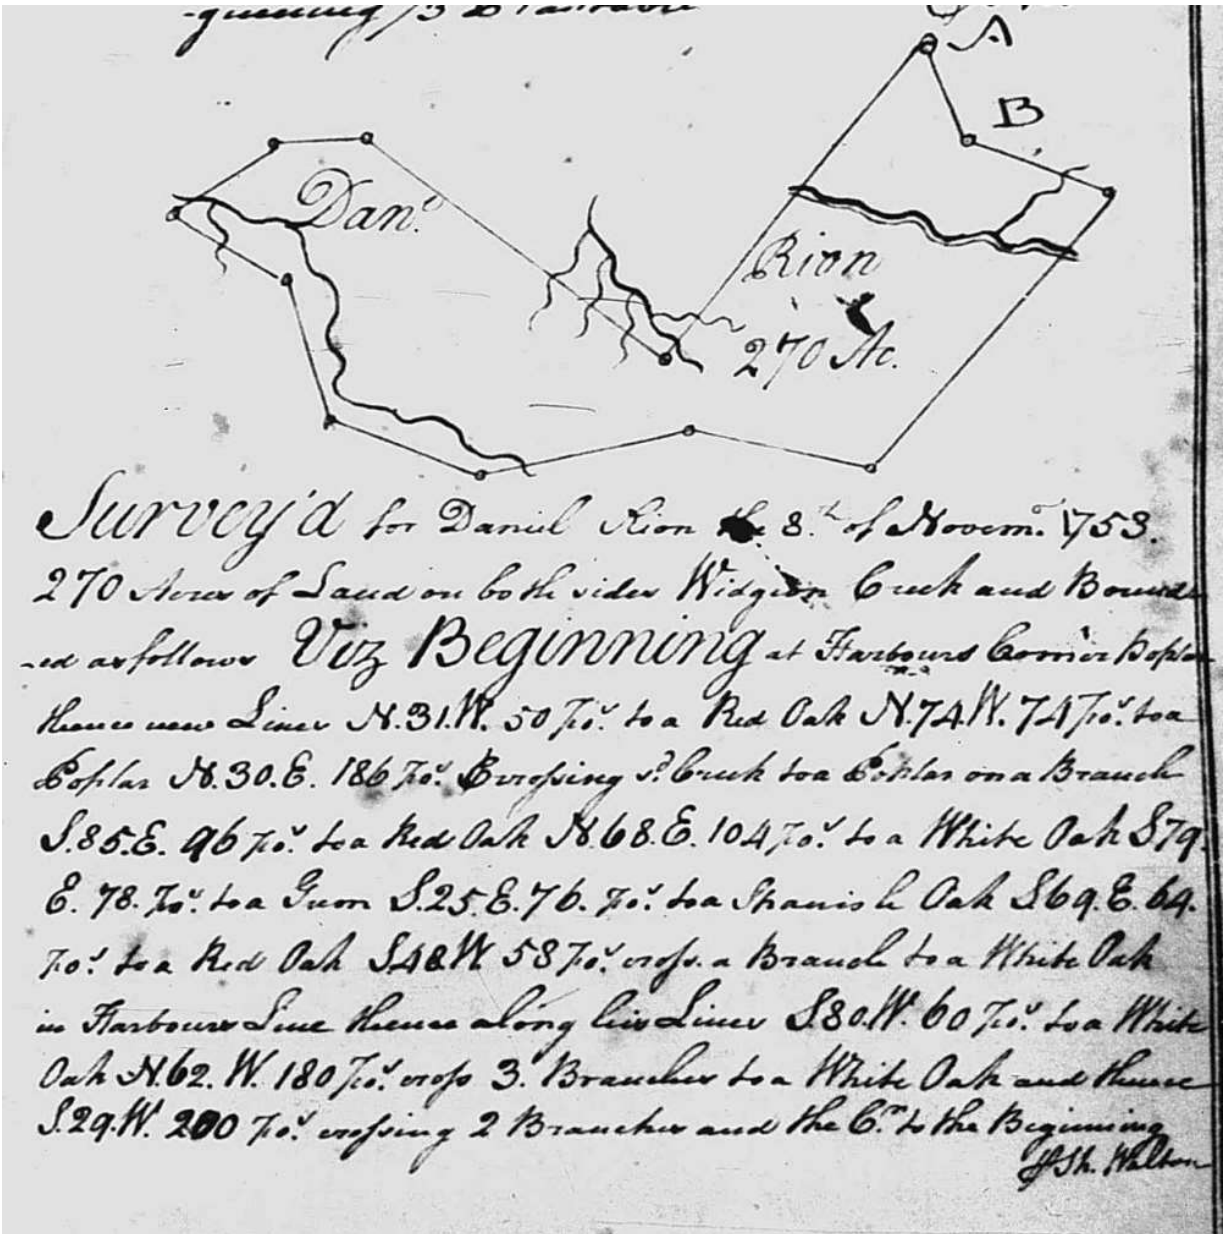 -ginning / 3
A
B
Dan.l
Rion
270 Ac.
Survey'd for Daniel Rion the 8.th of Novem.r 1753.
270 Acres of Land on both sides Widgion Creek and Bound-
-ed as follows Viz Beginning at Harbours Corner Poplar
thence new Lines N.31.W. 50 po.s to a Red Oak N.74.W. 74 po.s to a
Poplar N.30.E. 186 po.s Crossing s.d Creek to a Poplar on a Branch
S.85.E. 96 po.s to a Red Oak N.68.E. 104 po.s to a White Oak S79.
E. 78. po.s to a Gum S.25.E. 76. po.s to a Spanish Oak S.69.E. 64.
po.s to a Red Oak S.48.W. 58 po.s cross. a Branch to a White Oak
in Harbours Line thence along his Lines S.80.W. 60 po.s to a White
Oak N.62.W. 180 po.s cross 3. Branches to a White Oak and thence
S.29.W. 200 po.s crossing 2 Branches and the C.r to the Beginning
Walton